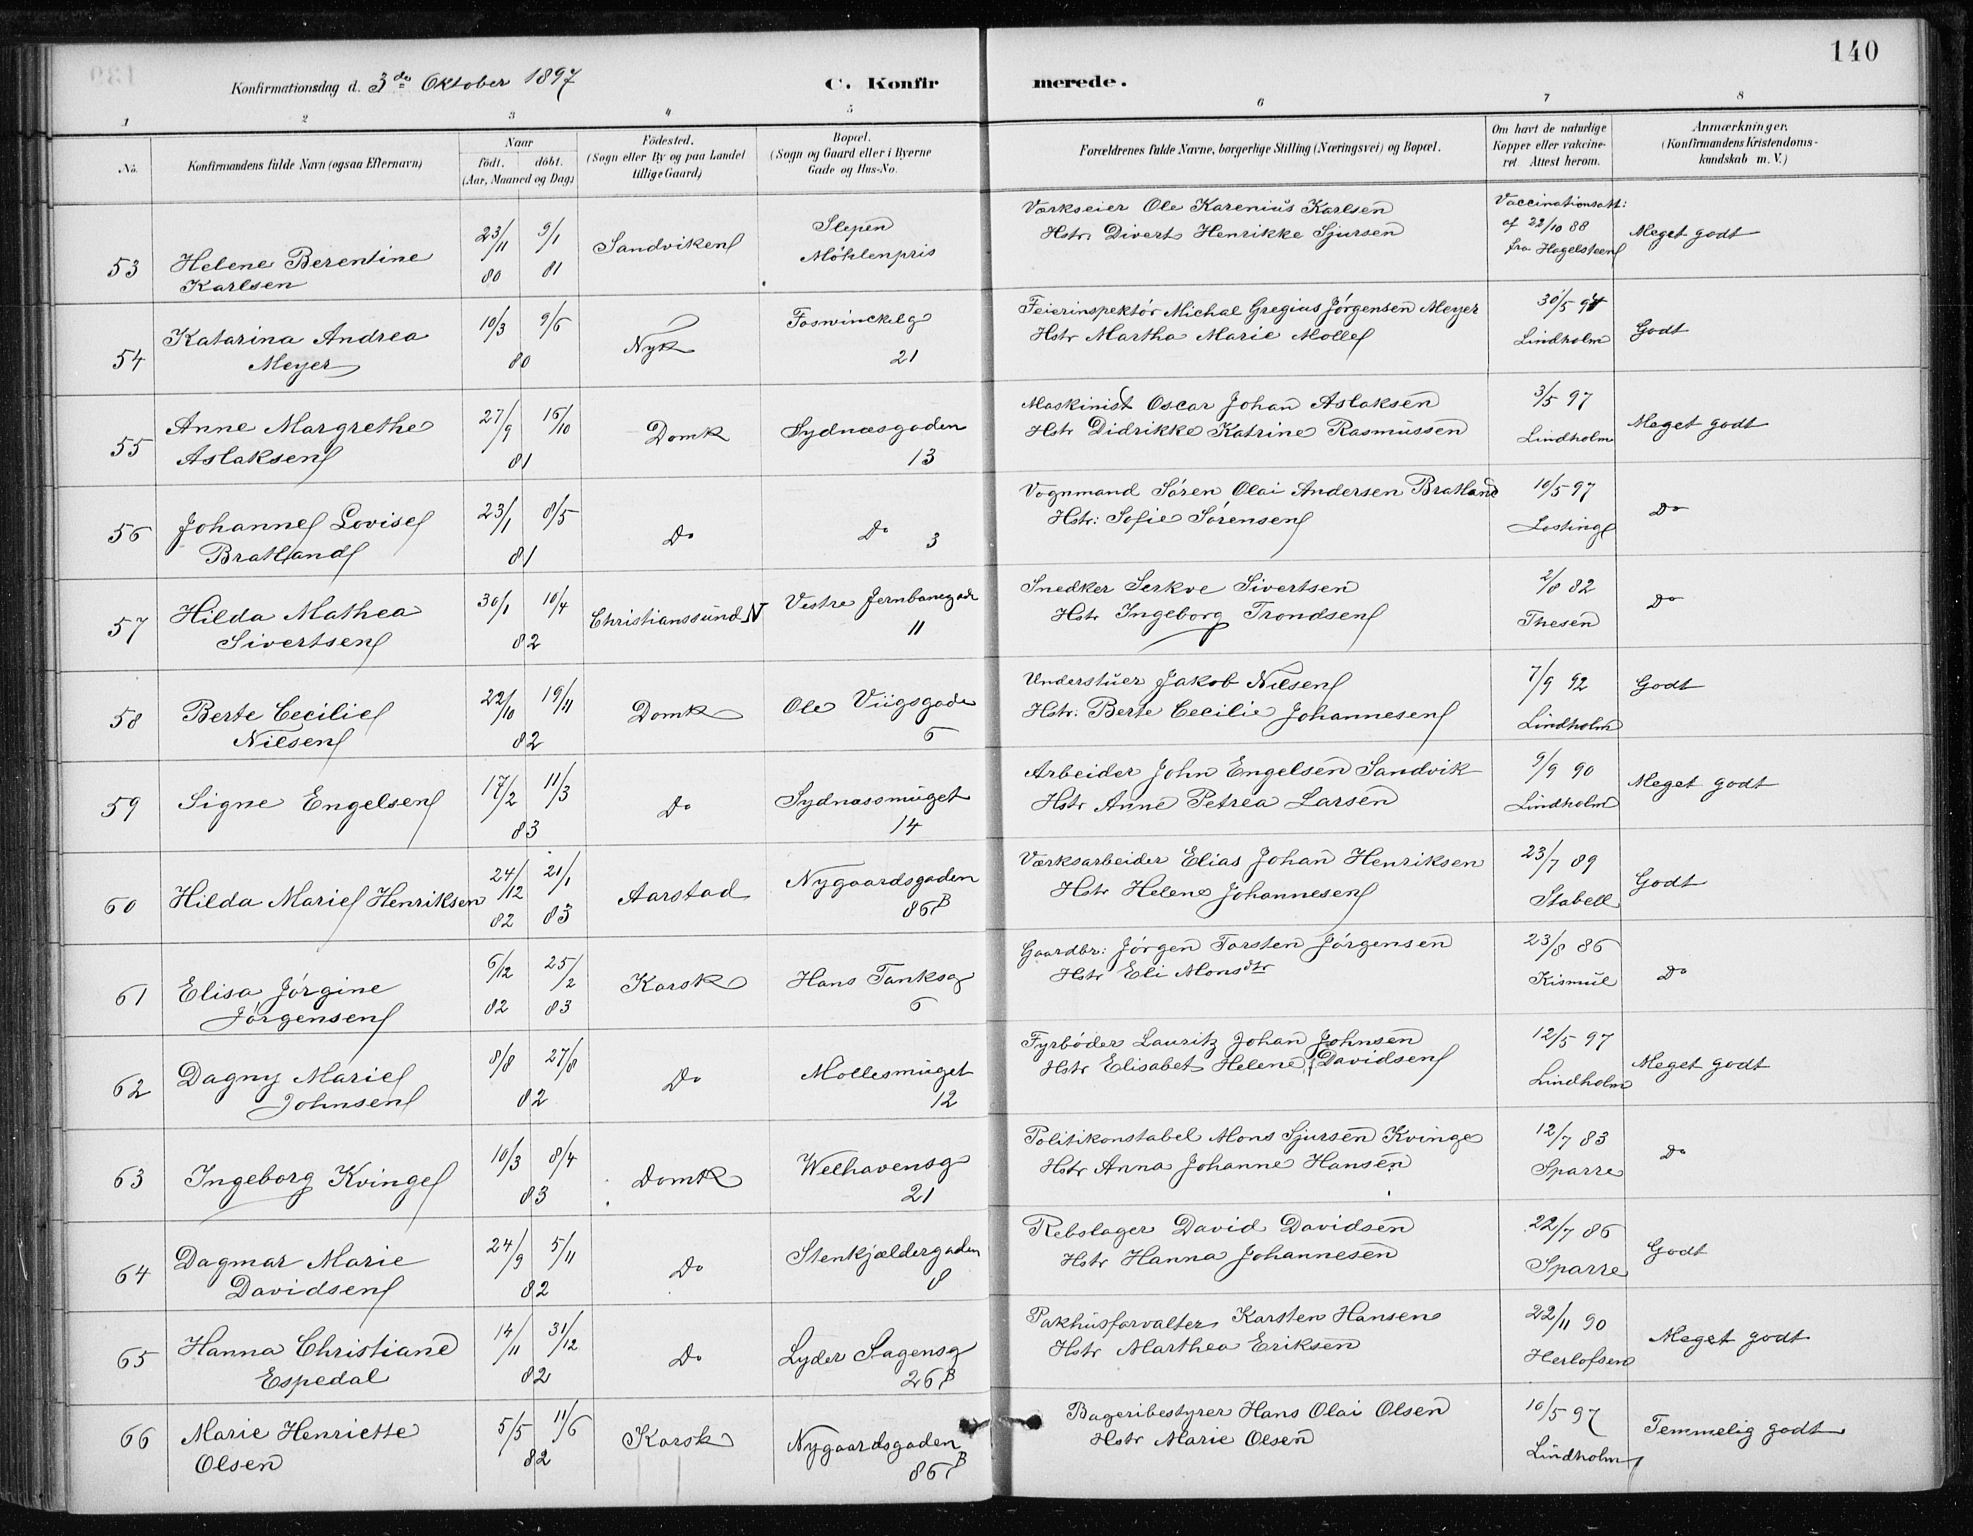 140
Konfirmationsdag d. 3de Oktober 1897
C. Konfirmerede.
1 2 3 4 5 6 7 8
No.
Konfirmandens fulde Navn (ogsaa Efternavn)
Naar
födt. döbt.
(Aar, Maaned og Dag)
Födested.
(Sogn eller By og paa Landet
tillige Gaard)
Bopæl.
(Sogn og Gaard eller i Byerne
Gade og Hus-No.
Forældrenes fulde Navne, borgerlige Stilling (Næringsvei) og Bopæl.
Om havt de naturlige
Kopper eller vakcine-
ret. Attest herom.
Anmærkninger.
(Konfirmandens Kristendoms-
kundskab m. V.)
53 Helene Berentine
Karlsen
23/11 80 9/1 81
Sandviken
Slepen
Möhlenpris
Værkseier Ole Karenius Karlsen
Hstr. Divert Henrikke Sjursen
Vaccinationsatt:
af 22/10 88
fra Hagelsteen
Meget godt
54 Katarina Andrea
Meyer
10/3 9/6
80
Nyk
Foswinckelg
21
Feierinspektör Michal Gregius Jørgensen Meyer
Hstr Martha Marie Molle
30/5 97
Lindholm
Godt
55 Anne Margrethe
Aslaksen
27/9 16/10
81
Domk
Sydnæsgaden
13
Maskinist Oscar Johan Aslaksen
Hstr Didrikke Katrine Rasmussen
3/5 97
Lindholm
Meget godt
56 Johanne Lovise
Bratland
23/1 8/5
81
Do
Do 3
Vognmand Søren Olai Andersen Bratland
Hstr: Sofie Sørensen
10/5 97
Losting
Do
57 Hilda Mathea
Sivertsen
30/1 10/4
82
Christianssund N
Vestre Jernbanegade
11
Snedker Serkve Sivertsen
Hstr Ingeborg Trondsen
2/8 82
Thesen
Do
58 Berte Cecilie
Nilsen
22/10 19/11
82
Domk
Ole Viigsgade
6
Understuer Jakob Nilsen
Hstr: Berte Cecilie Johannesen
7/9 92
Lindholm
Godt
59 Signe Engelsen
17/2 11/3
83
Do
Sydnæssmuget
14
Arbeider John Engelsen Sandvik
Hstr Anne Petrea Larsen
9/9 90
Lindholm
Meget godt
60 Hilda Marie Henriksen
24/12 82 21/1 83
Aarstad
Nygaardsgaden
86B
Værksarbeider Elias Johan Henriksen
Hstr Helene Johannesen
23/7 89
Stabell
Godt
61 Elisa Jørgine
Jørgensen
6/12 82 25/2 83
Korsk
Hans Tanksg
6
Gaardbr: Jørgen Torsten Jørgensen
Hstr Eli Monsdtr
23/8 86
Kismul
Do
62 Dagny Marie
Johnsen
8/8 27/8
82
Do
Mollesmuget
12
Fyrbøder Lauritz Johan Johnsen
Hstr Elisabet Helene Davidsen
12/5 97
Lindholm
Meget godt
63 Ingeborg Kvinge
10/3 8/4
83
Domk
Welhavensg
21
Politikonstabel Mons Sjursen Kvinge
Hstr Anna Johanne Hansen
12/7 83
Sparre
Do
64 Dagmar Marie
Davidsen
24/9 5/11
82
Do
Stenkjældergaden
8
Rebslager David Davidsen
Hstr Hanna Johannesen
22/7 86
Sparre
Godt
65 Hanna Christiane
Espedal
14/11 31/12
82
Do
Lyder Sagensg
26B
Pakhusforvalter Karsten Hansen
Hstr Marthea Eriksen
22/11 90
Herlofsen
Meget godt
66 Marie Henriette
Olsen
5/5 11/6
82
Korsk
Nygaardsgaden
86B
Bageribestyrer Hans Olai Olsen
Hstr Marie Olsen
10/5 97
Lindholm
Temmelig godt